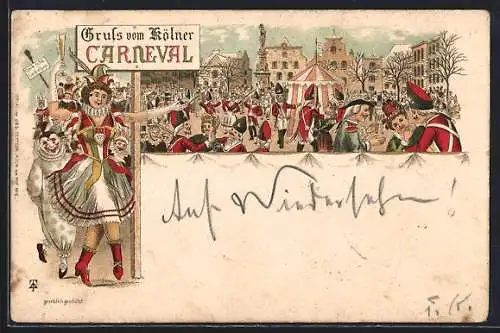 Gruss vom Kölner
CARNEVAL
Auf Wiedersehn!
gesetzlich geschützt.